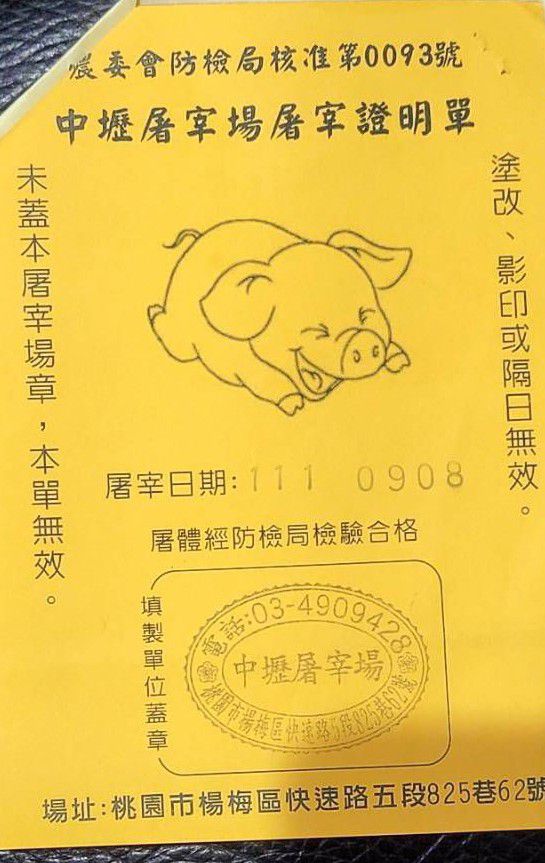 農委會防檢局核准第0093號
中壢屠宰場屠宰證明單
塗改、影印或隔日無效。
未蓋本屠宰場章，本單無效。
屠宰日期:111 0908
屠體經防檢局檢驗合格
填製單位蓋章
電話:03-4909428
中壢屠宰場
桃園市楊梅區快速路5段825巷62號
場址:桃園市楊梅區快速路五段825巷62號